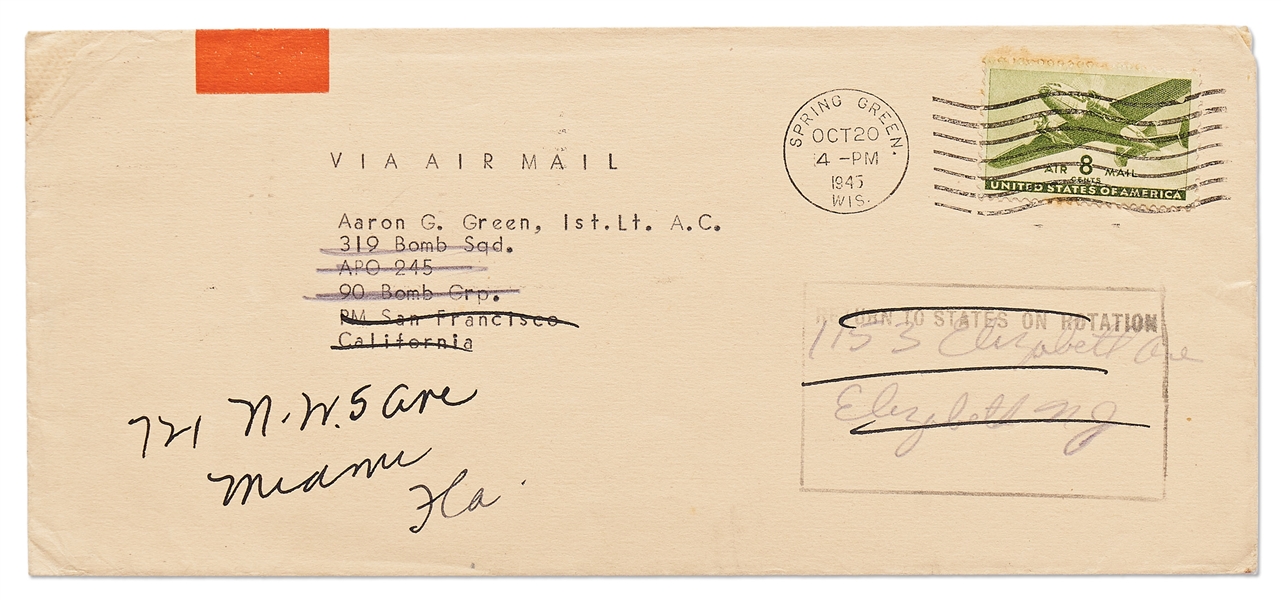 SPRING GREEN.
OCT 20
4 -PM
1945
WIS.
AIR 8 MAIL
CENTS
UNITED STATES OF AMERICA
VIA AIR MAIL
Aaron G. Green, 1st.Lt. A.C.
319 Bomb Sqd.
APO 245
90 Bomb Grp.
PM San Francisco
California
RETURN TO STATES ON ROTATION
1153 Elizabeth Ave
Elizabeth NJ
721 N.W. 5 Ave
Miami
Fla.